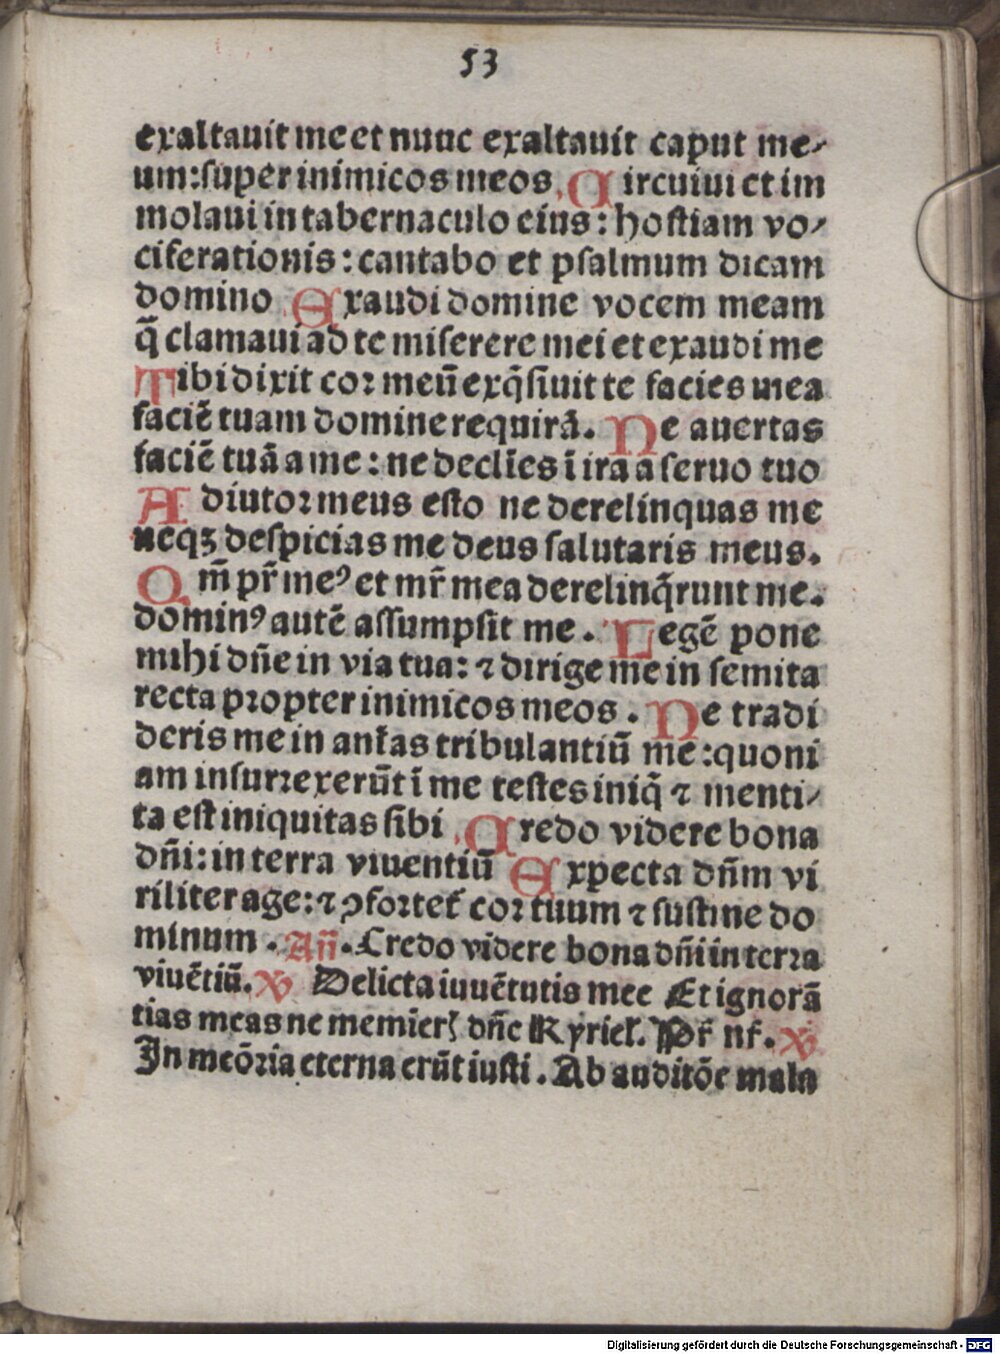 53
exaltauit me et nunc exaltauit caput me⸗
um:super inimicos meos. Circuiui et im
molaui in tabernaculo eius : hostiam vo⸗
ciferationis : cantabo et psalmum dicam
domino Exaudi domine vocem meam
q̄ clamaui ad te miserere mei et exaudi me
Tibi dixit cor meū exq̄siuit te facies mea
faciē tuam domine requirā. Ne auertas
faciē tuā a me : ne declīes ī ira a seruo tuo
Adiutor meus esto ne derelinquas me
neqꝫ despicias me deus salutaris meus.
Qm̄ pr̄ meꝰ et mr̄ mea derelinq̄runt me.
dominꝰ autē assumpsit me. Legē pone
mihi dn̄e in via tua: ⁊ dirige me in semita
recta propter inimicos meos. Ne tradi
deris me in aīas tribulantiū me:quoni
am insurrexerūt ī me testes iniq̄ ⁊ menti⸗
ta est iniquitas sibi. Credo videre bona
dn̄i: in terra viuentiū Expecta dn̄m vi
riliter age: ⁊ ↄfortet̄ cor tuum ⁊ sustine do
minum. Añ. Credo videre bona dn̄i in terra
viuētiū. ꝟ Delicta iuuētutis mee Et ignorā
tias meas ne memīerꝭ dn̄e Kyriel̄. Pr̄ nr̄. ꝟ
In meōria eterna erūt iusti. Ab auditōe mala
Digitalisierung gefördert durch die Deutsche Forschungsgemeinschaft - DFG